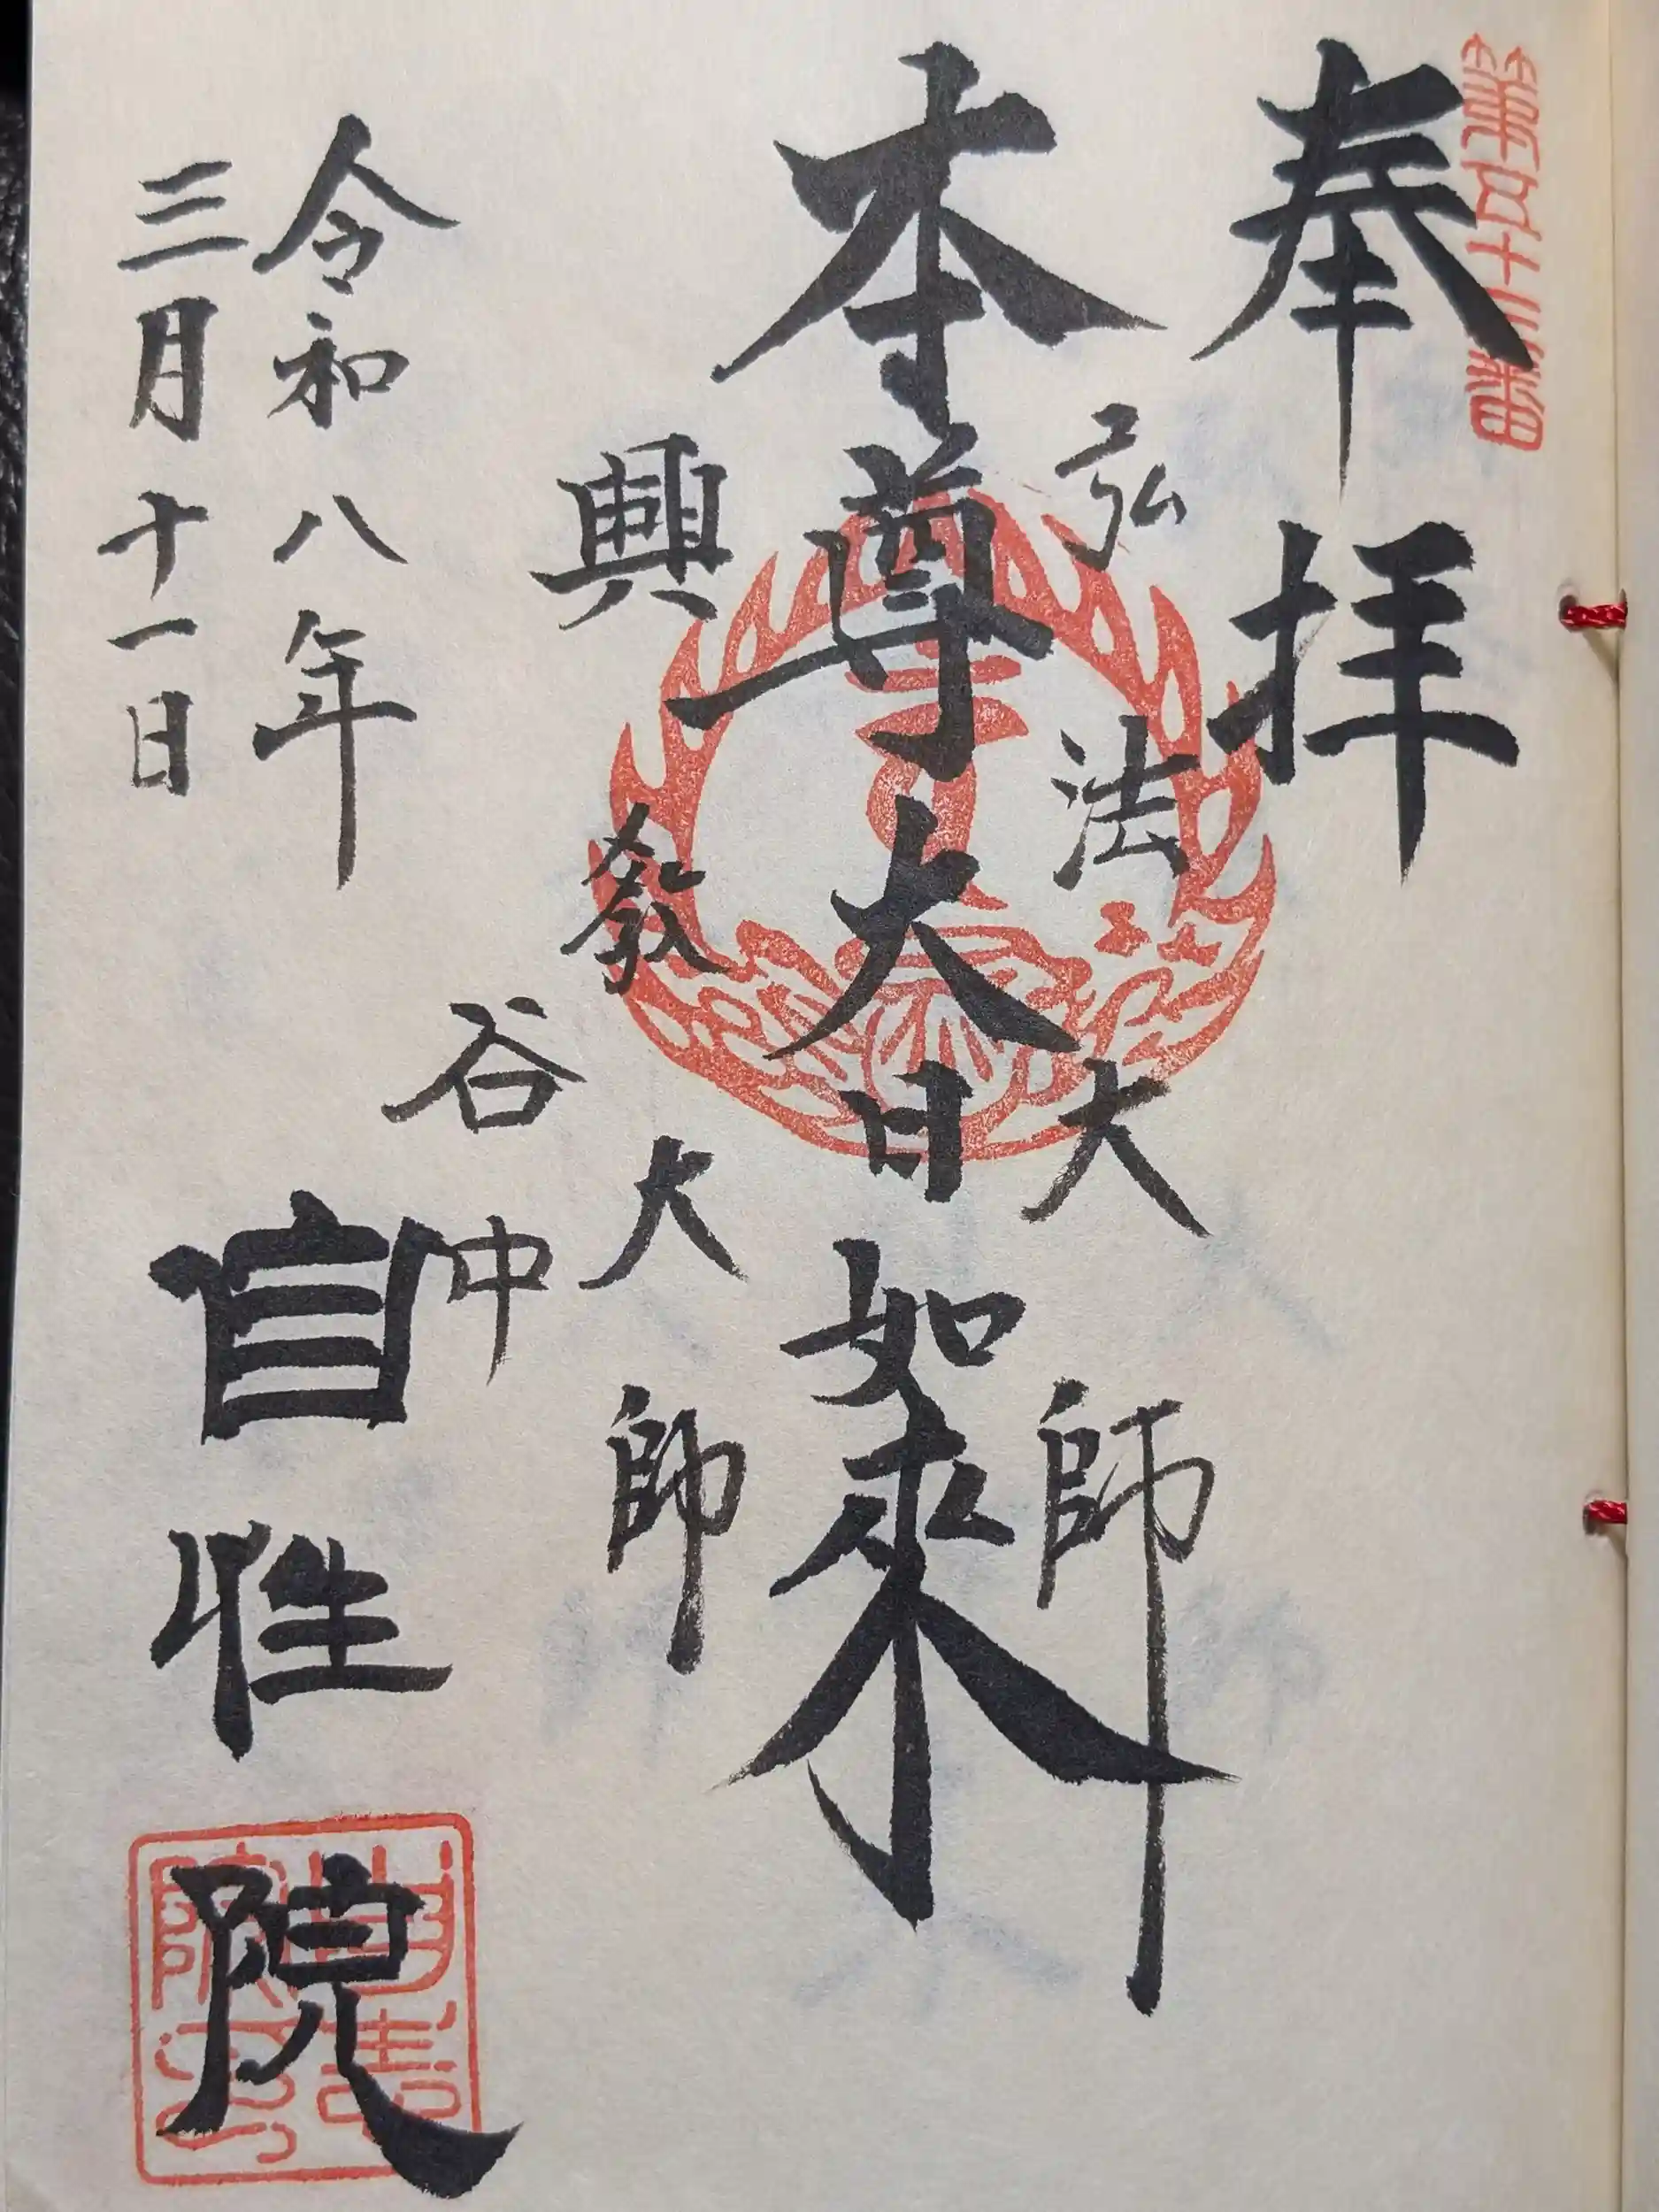 第五十三番
奉拝
弘法大師
本尊大日如来
興教大師
谷中
自性院
令和八年
三月十一日